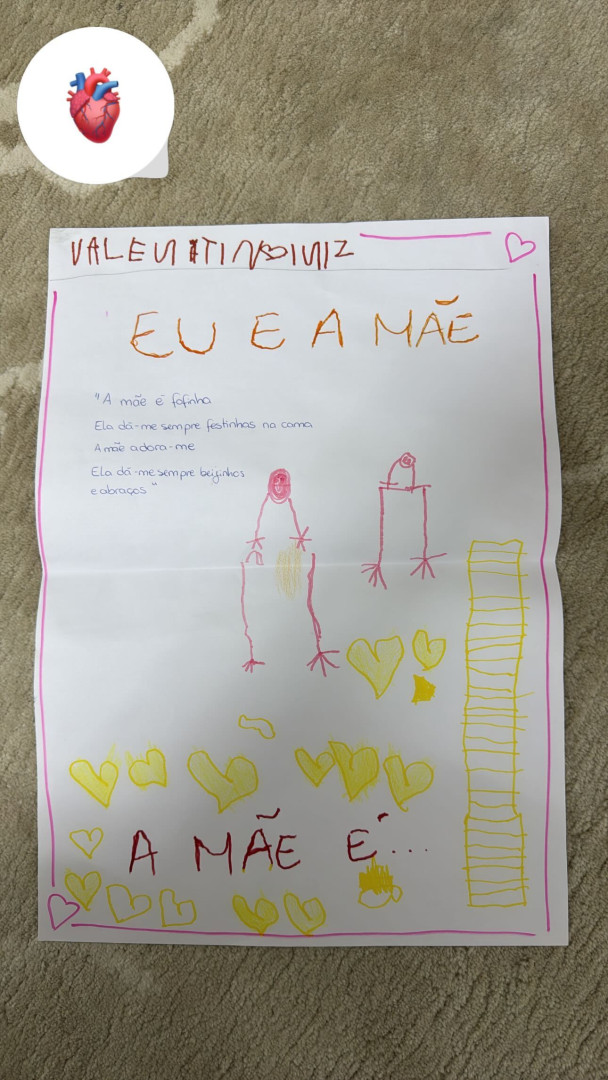 VALENTINO DINIZ
EU E A MÃE
"A mãe é fofinha
Ela dá-me sempre festinhas na cama
A mãe adora-me
Ela dá-me sempre beijinhos
e abraços"
A MÃE É...